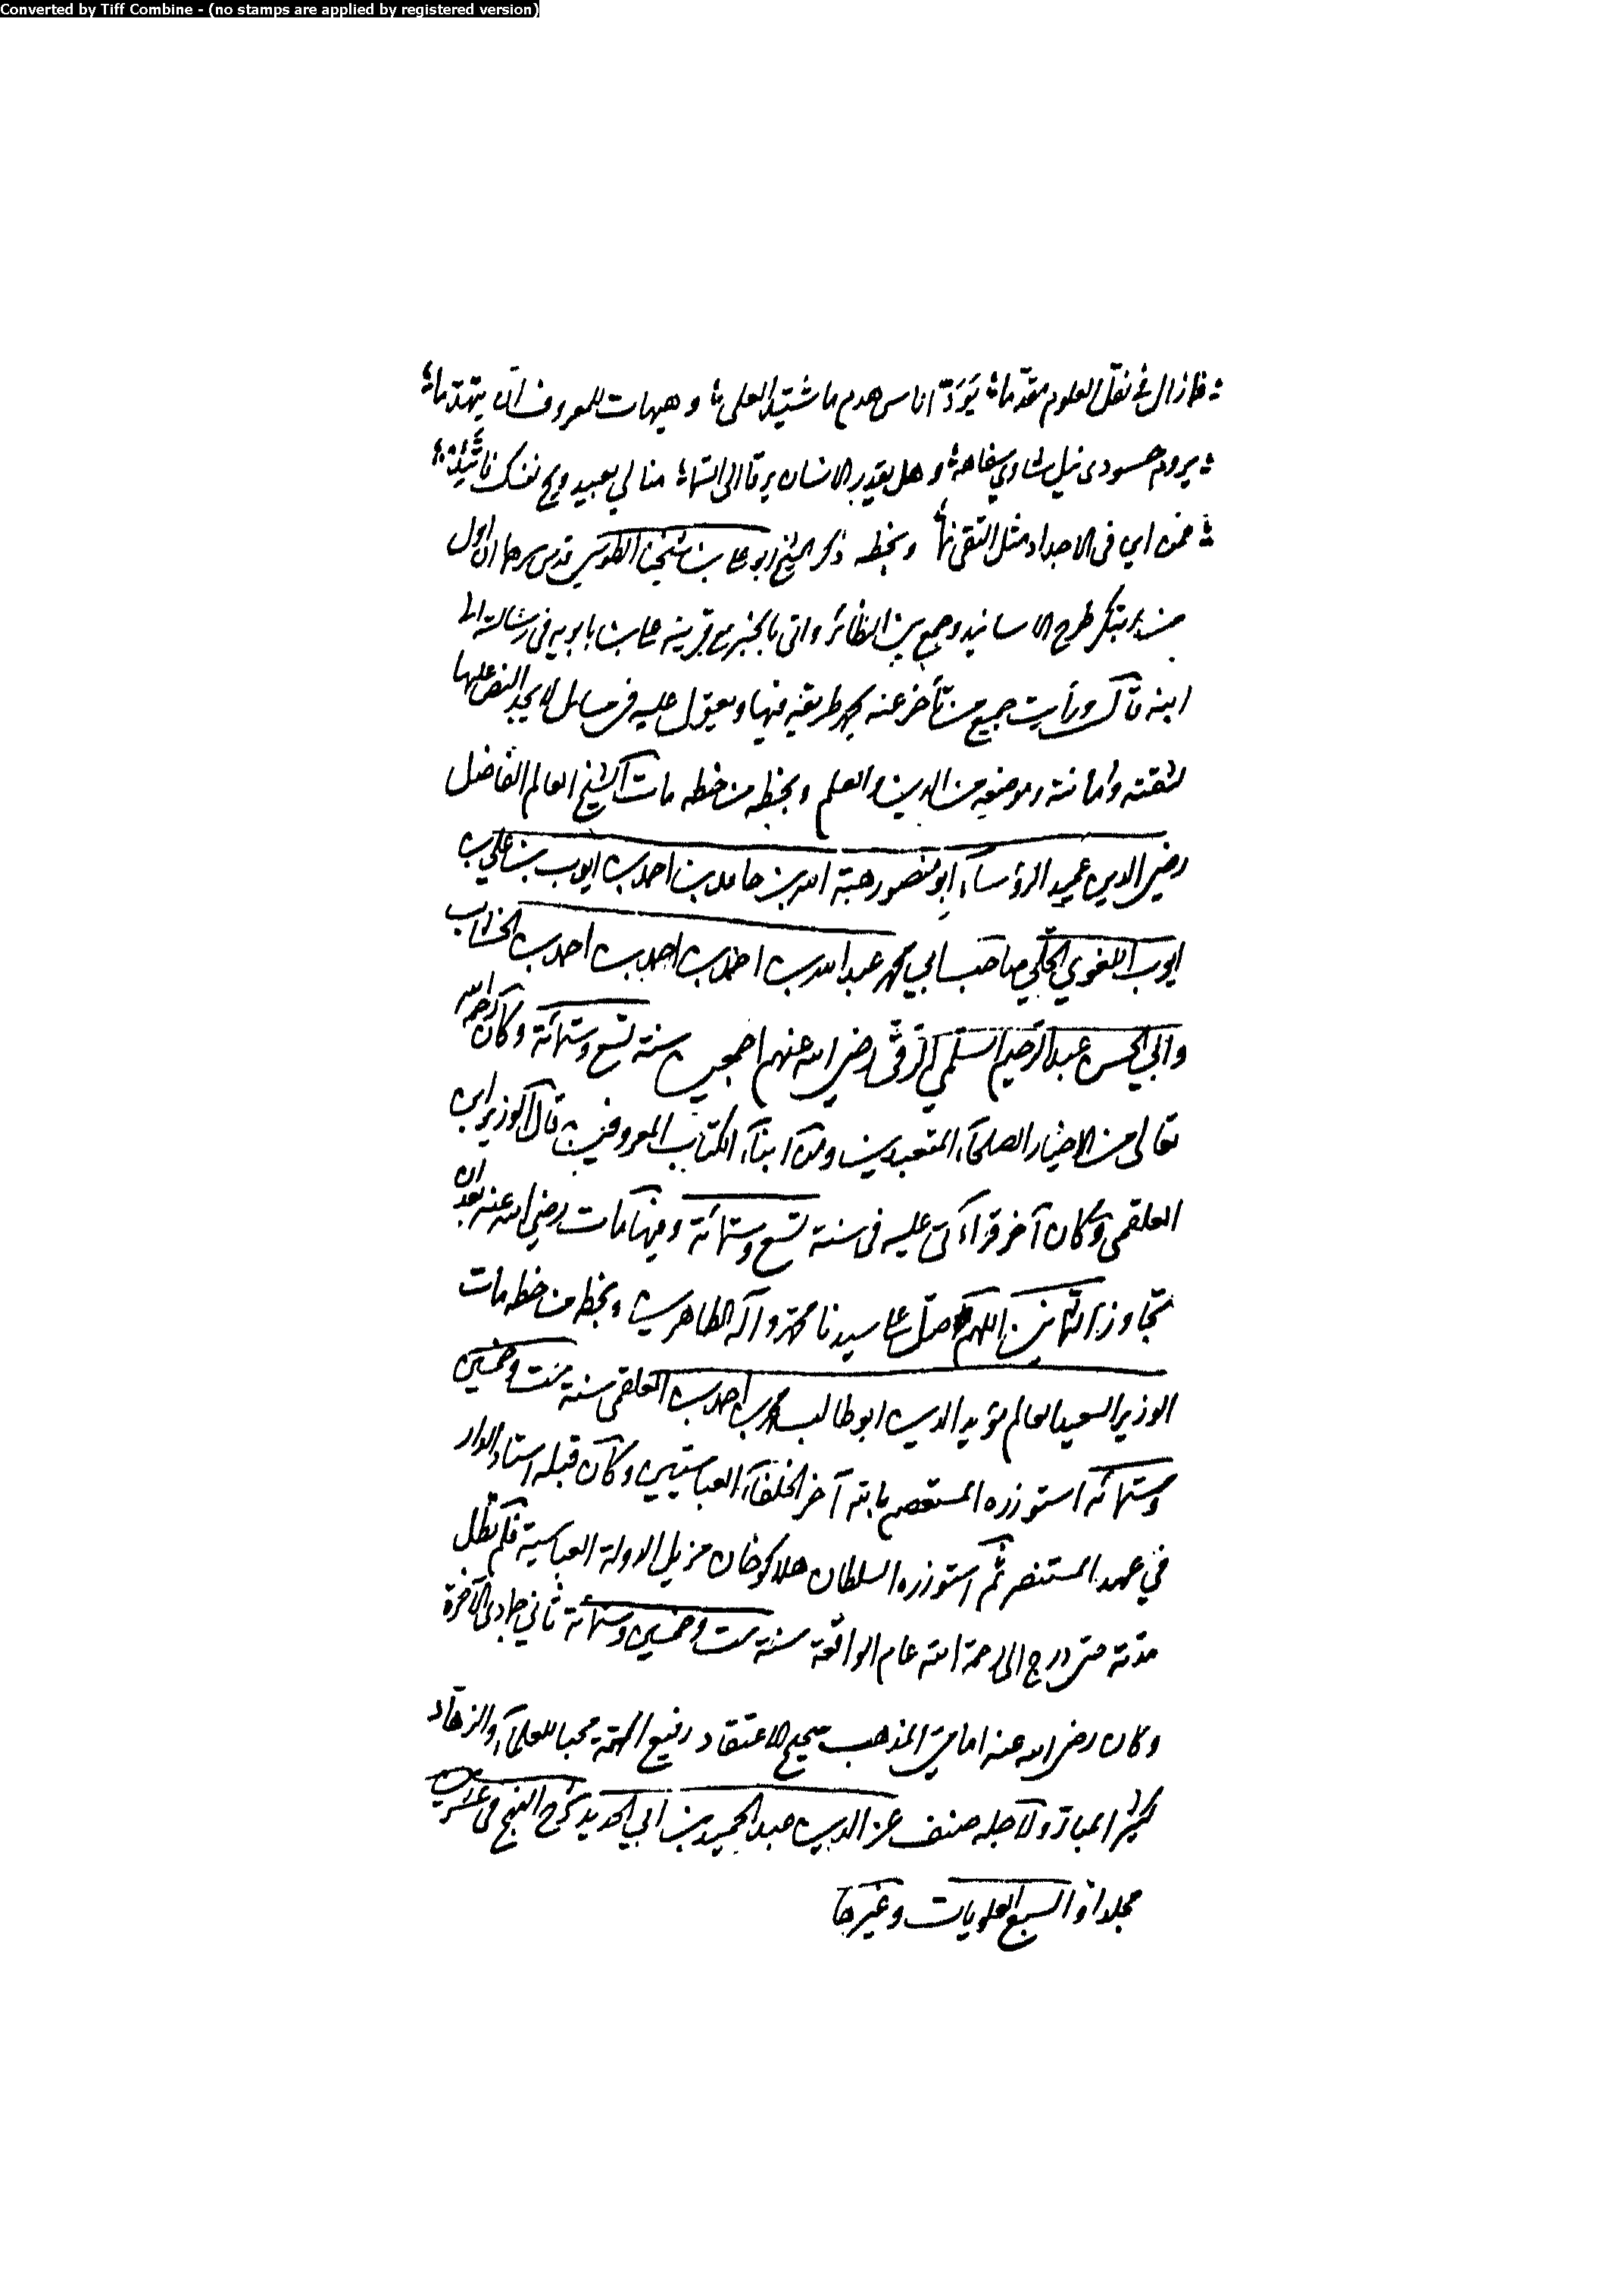 Converted by Tiff Combine - (no stamps are applied by registered version)
فما زال في نقل العلوم مقدّما يَوَدّ اناس هدم ما شيّد العلى وهيهات للمعروف ان يتهدّما
يروم حسودى نيل شاوي سفاهة وهل يقدر الانسان يرقا الى السّما منالي بعيد ويح نفسك فاتّئد
فمن اين في الاجداد مثل التقى نما وبخطه ذكر الشيخ ابو علي بن شيخنا الطوسي قدس سرهما ان اول
من ابتكر طرح الاسانيد وجمع بين النظائر واتى بالخبر مع قرينه علي بن بابويه في رسالته الى
ابنه قال ورأيت جميع من تأخر عنه يحمد طريقته فيها ويعوّل عليه في مسائل لا يجد النص عليها
لثقته وأمانته وموضعه من الدين والعلم وبخطه من خطه مات الشيخ العالم الفاضل
رضي الدين عميد الرؤساء ابو منصور هبة الله بن حامد بن احمد بن ايوب بن علي بن
ايوب اللغوي الحلّي صاحب ابي محمد عبد الله بن احمد بن احمد بن احمد بن الخشاب
وابي الحسن عبد الرحيم السلمي الرقي رضي الله عنهم اجمعين سنة تسع وستمائة وكان رحمه الله
تعالى من الاخيار الصلحاء المتعبدين ومن ابناء الكتاب المعروفين قال الوزير ابن
العلقمى وكان آخر قراءتي عليه في سنة تسع وستمائة وفيها مات رضي الله عنه بعد ان
تجاوز الثمانين اللهم صلّ على سيدنا محمد وآله الطاهرين وبخطه من خطه مات
الوزير السعيد العالم مؤيد الدين ابو طالب محمد بن احمد بن العلقمى سنة ست وخمسين
وستمائه استوزره المستعصم بالله آخر الخلفاء العباسيين وكان قبله استاد الدار
في عهد المستنصر ثم استوزره السلطان هلاكوخان مزيل الدولة العباسية فلم تطل
مدته حتى درج الى رحمة الله عام الواقعة سنة ست وخمسين وستمائة ثاني جمادى الآخرة
وكان رضي الله عنه امامي المذهب صحيح الاعتقاد رفيع الهمة محبا للعلماء والزهاد
كثير المبار ولاجله صنف عز الدين عبد الحميد بن ابي الحديد شرح النهج في عشرين
مجلدا والسبع العلويات وغيرها